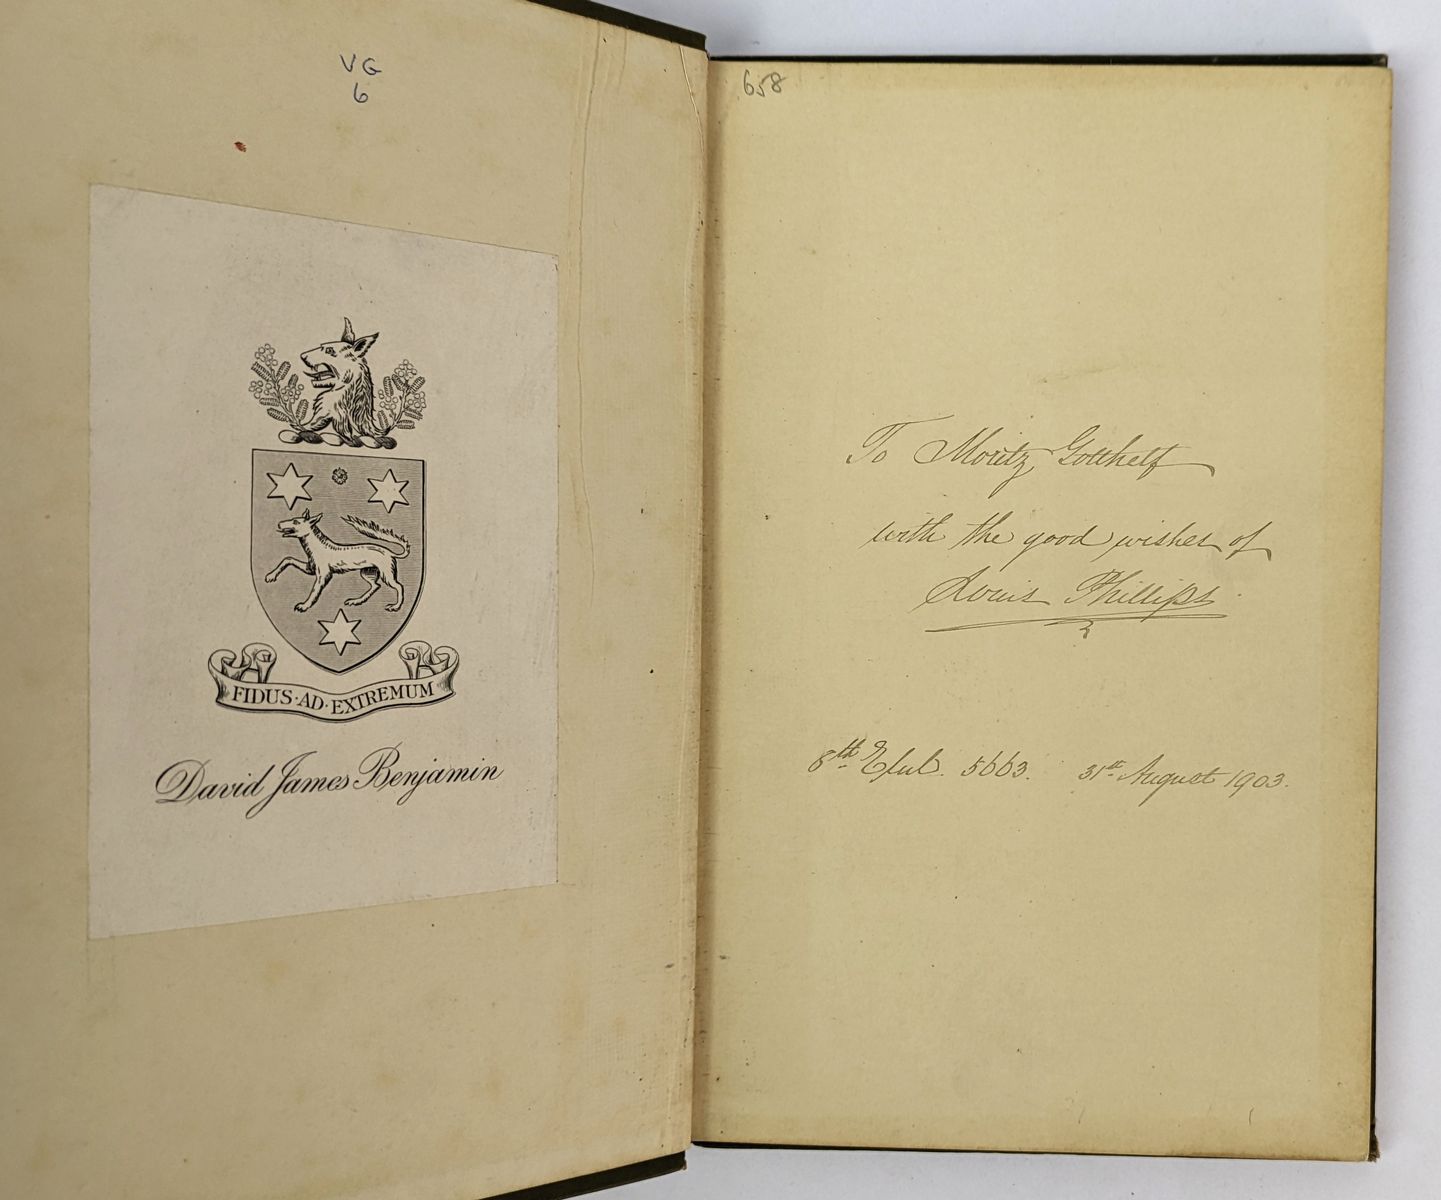 VG
6
FIDUS·AD·EXTREMUM
David James Benjamin
658
To Moritz Gotthelf
with the good wishes of
Louis Phillips.
8th Elul. 5663. 31st August 1903.